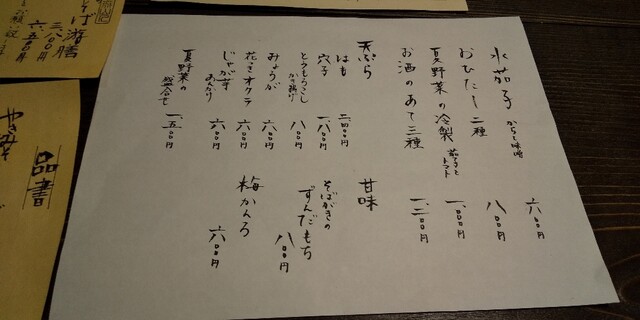 水茄子 からし味噌 六〇〇円
おひたし 二種 八〇〇円
夏野菜の冷製 茄子とトマト 一、〇〇〇円
お酒のあて三種 一、二〇〇円
天ぷら
はも 二、四〇〇円
穴子 一、八〇〇円
とうもろこし かき揚げ 八〇〇円
みょうが 六〇〇円
花オクラ 六〇〇円
じゃが芋 あんかけ 六〇〇円
夏野菜の 盛合せ 一、五〇〇円
甘味
そばがきの ずんだもち 八〇〇円
梅かんろ 六〇〇円
そば遊膳
三八〇〇円
六五〇〇円
品書
やきみそ